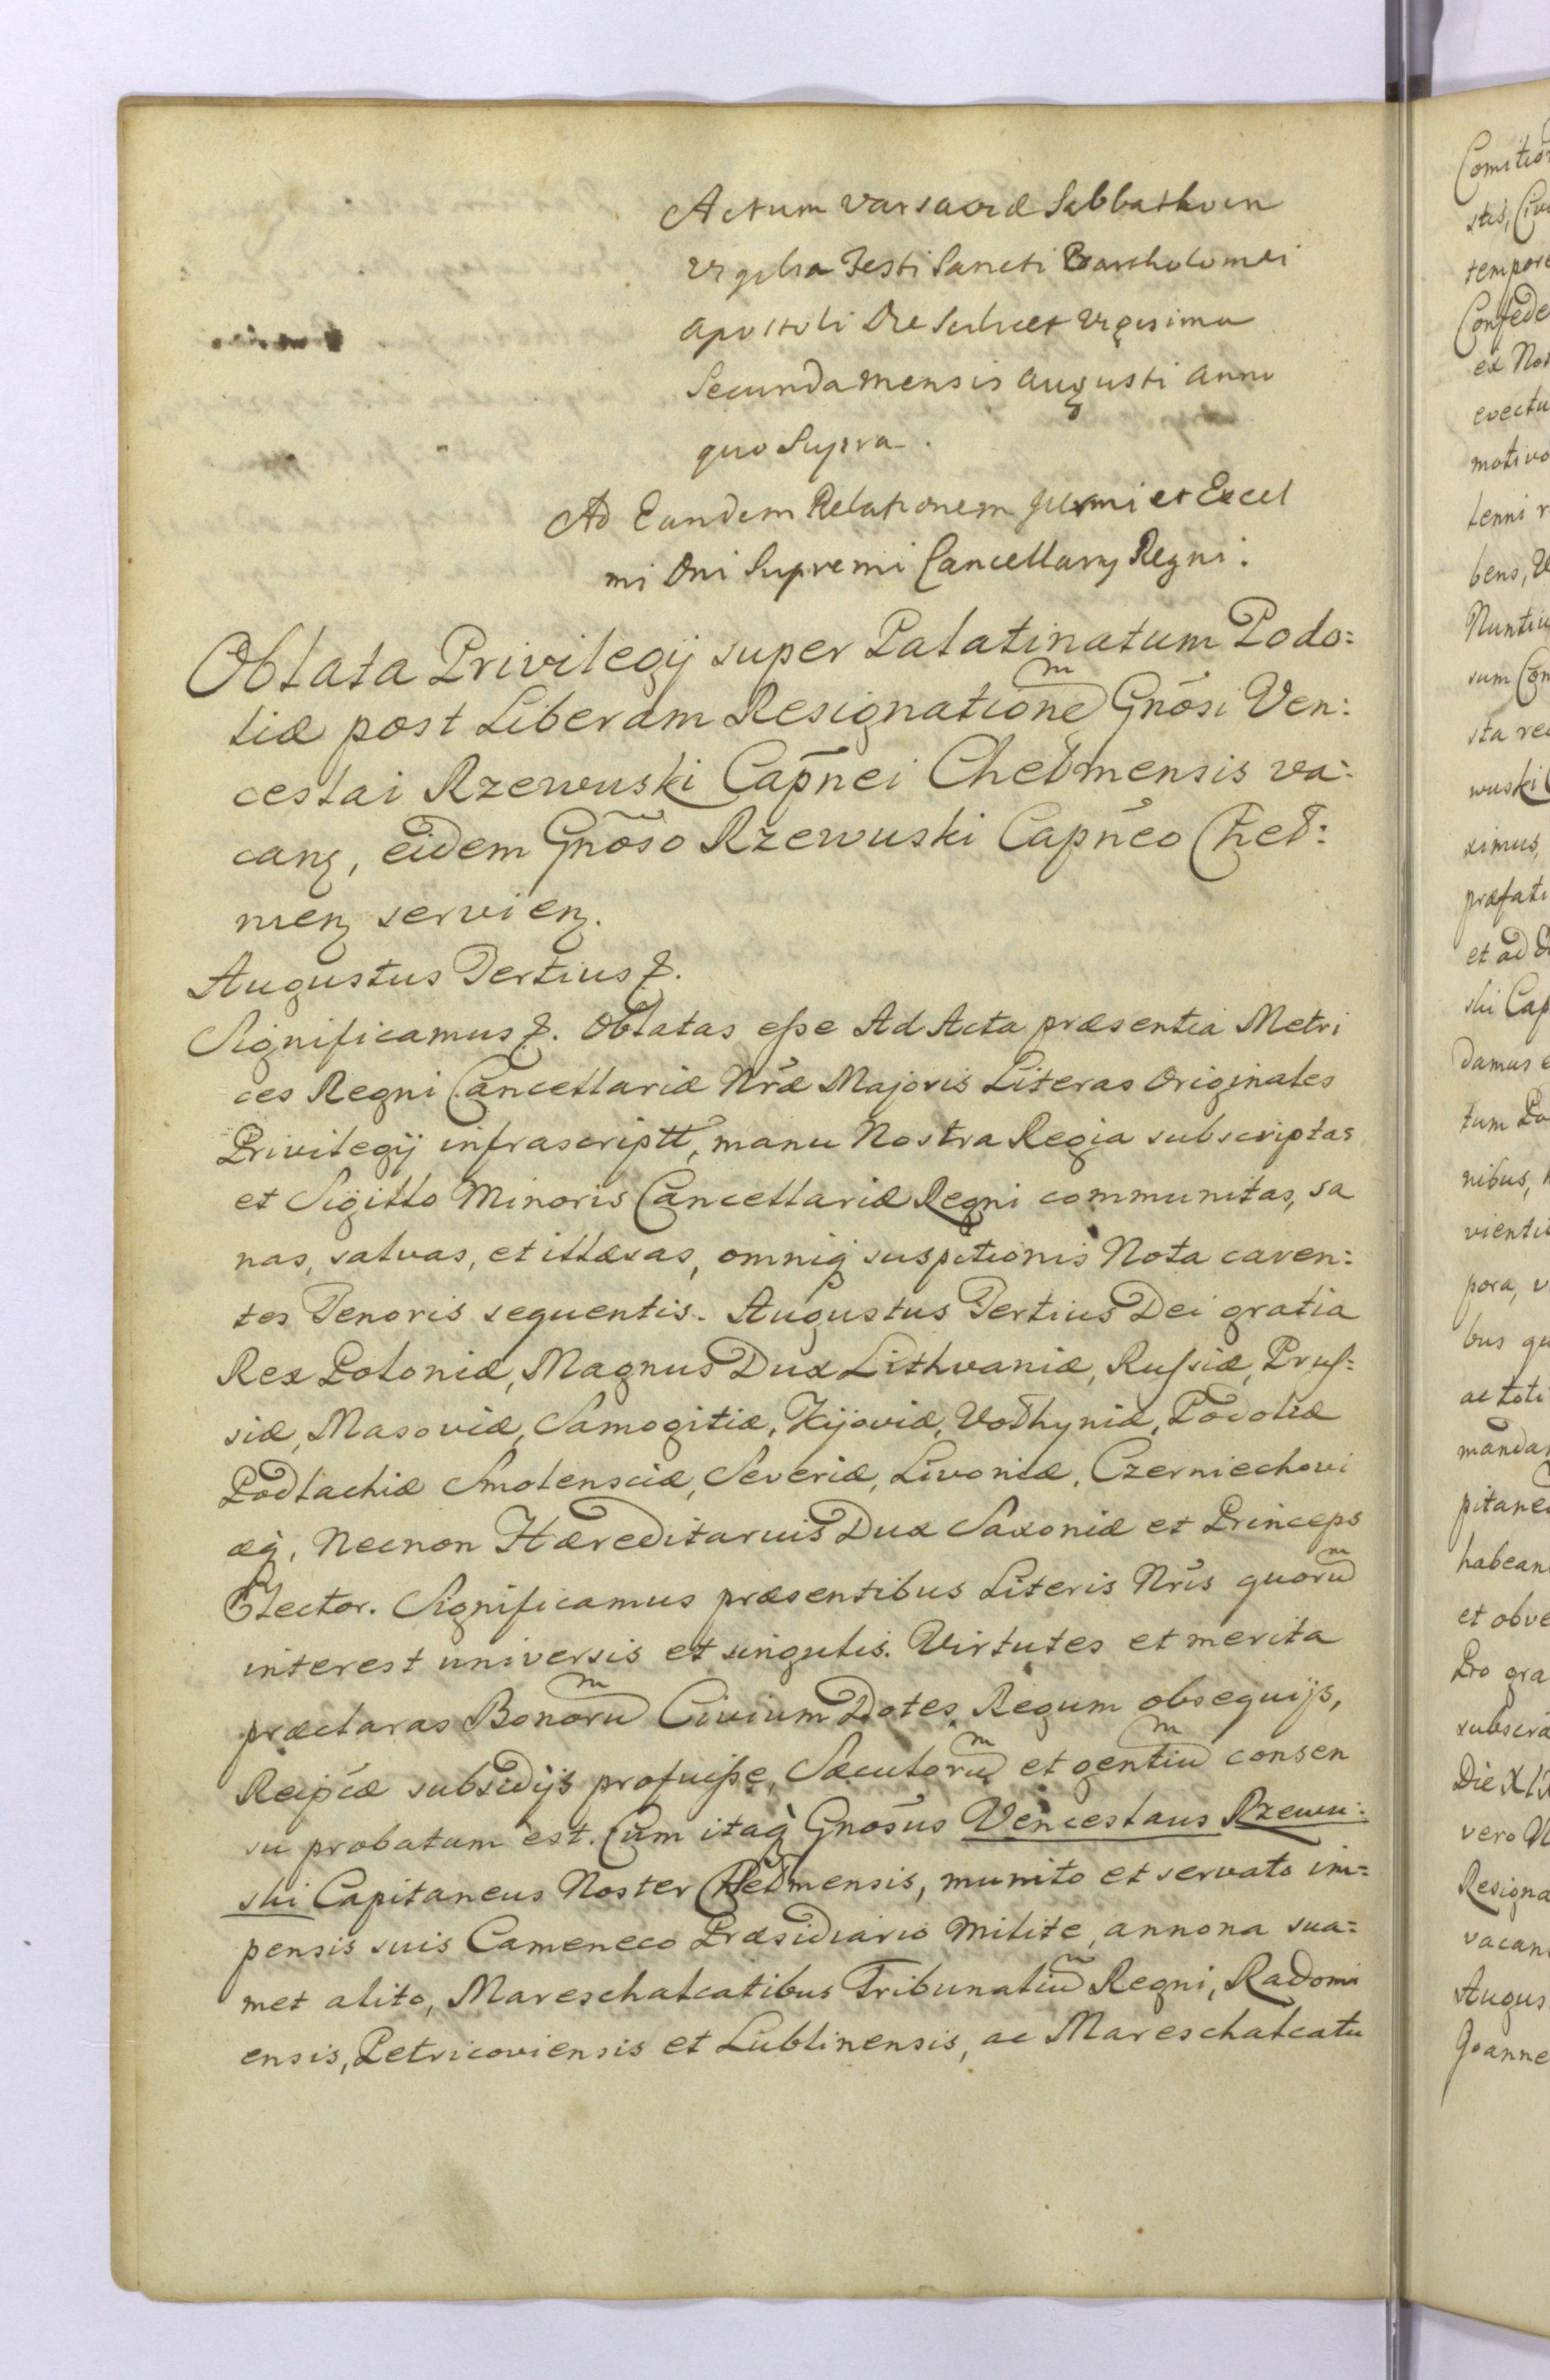 Actum Varsaviæ Sabbatho in
Vigilia Festi Sancti Bartholomæi
Apostoli Die Scilicet Vigesima
Secunda mensis Augusti Anno
quo Supra.
Ad Eandem Relationem Illmi et Excel
mi Dni Supremi Cancellarij Regni.
Oblata Privilegij super Palatinatum Podo:
liæ post Liberam Resignationem Gnōsi Ven:
ceslai Rzewuski Capn̄ei Chełmensis va:
canꝫ, eidem Gnōso Rzewuski Capn̄eo Cheł:
menꝫ servienꝫ.
Augustus Tertius ꝛ.
Significamus ꝛ. Oblatas eſse Ad Acta præsentia Metri
ces Regni Cancellariæ Nr̄æ Majoris Literas Originales
Privilegij infrascriptt, manu Nostra Regia subscriptas
et Sigillo Minoris Cancellariæ Regni communitas, sa
nas, salvas, et illæsas, omniq̨ suspitionis Nota caren:
tes Tenoris sequentis. Augustus Tertius Dei gratia
Rex Poloniæ, Magnus Dux Lithvaniæ, Ruſsiæ, Pruſ:
siæ, Masoviæ, Samogitiæ, Kijoviæ, Vołhyniæ, Podoliæ
Podlachiæ Smolensciæ, Severiæ, Livoniæ, Czerniechovi
æq̨, Necnon Hæreditarius Dux Saxoniæ et Princeps
Elector. Significamus præsentibus Literis Nr̄is quorum
interest universis et singulis. Virtutes et merita
præclaras Bonorum Civium Dotes, Regum obsequijs,
Reip̄cæ subsidijs profuiſse, Sæculorum et gentium consen
su probatum est. Cum itaq̨ Gnōsus Venceslaus Rzewu:
ski Capitaneus Noster Chełmensis, munito et servato im:
pensis suis Cameneco Præsidiario Milite, annona sua:
met alito, Mareschalcatibus Tribunalium Regni, Radomi
ensis, Petricoviensis et Lublinensis, ac Mareschalcatu